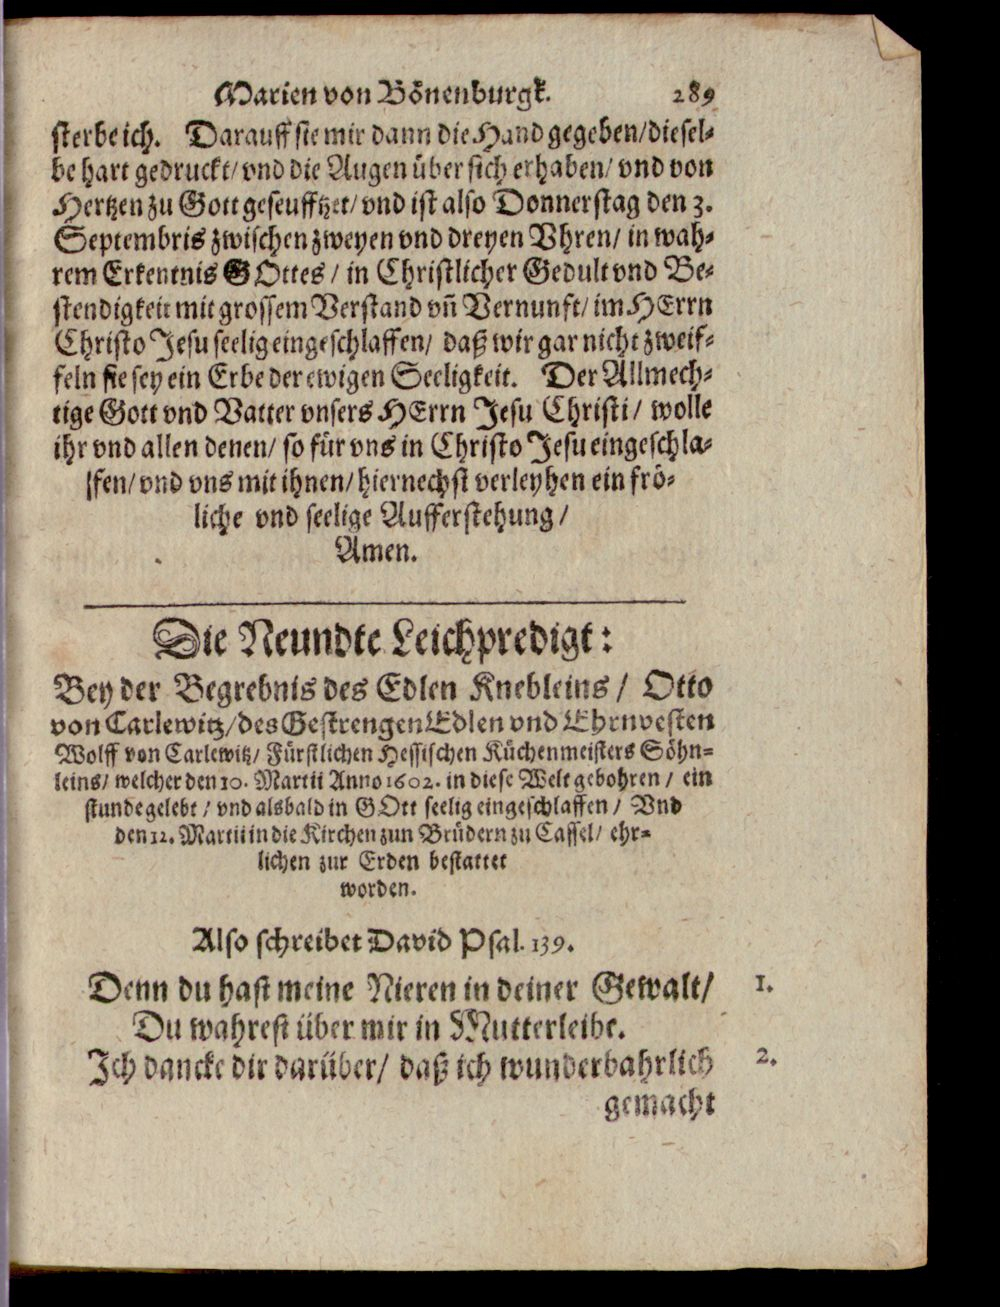 Marien von Bönenburgk. 289
sterbe ich. Darauff sie mir dann die Hand gegeben/ diesel-
be hart gedruckt/ vnd die Augen über sich erhaben/ vnd von
Hertzen zu Gott geseufftzet/ vnd ist also Donnerstag den 3.
Septembris zwischen zweyen vnd dreyen Vhren/ in wah-
rem Erkentnis GOttes / in Christlicher Gedult vnd Be-
stendigkeit mit grossem Verstand vñ Vernunft/ im HErrn
Christo Jesu seelig eingeschlaffen/ daß wir gar nicht zweif-
feln sie sey ein Erbe der ewigen Seeligkeit. Der Allmech-
tige Gott vnd Vatter vnsers HErrn Jesu Christi / wolle
ihr vnd allen denen/ so für vns in Christo Jesu eingeschla-
ffen/ vnd vns mit ihnen/ hiernechst verleyhen ein frö-
liche vnd seelige Aufferstehung /
Amen.
Die Neundte Leichpredigt :
Bey der Begrebnis des Edlen Knebleins / Otto
von Carlewitz/ des Gestrengen Edlen vnd Ehrnvesten
Wolff von Carlewitz/ Fürstlichen Hessischen Küchenmeisters Söhn-
leins/ welcher den 10. Martii Anno 1602. in diese Welt gebohren / ein
stunde gelebt / vnd alsbald in GOtt seelig eingeschlaffen / Vnd
den 12. Martii in die Kirchen zun Brüdern zu Cassel/ ehr-
lichen zur Erden bestattet
worden.
Also schreibet David Psal. 139.
Denn du hast meine Nieren in deiner Gewalt/ 1.
Du wahrest über mir in Mutterleibe.
Ich dancke dir darüber/ daß ich wunderbahrlich 2.
gemacht